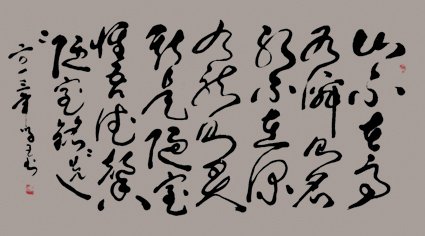 山不在高
有僊则名
水不在深
有龙则灵
斯是陋室
惟吾德馨
陋室铭
二〇一三年